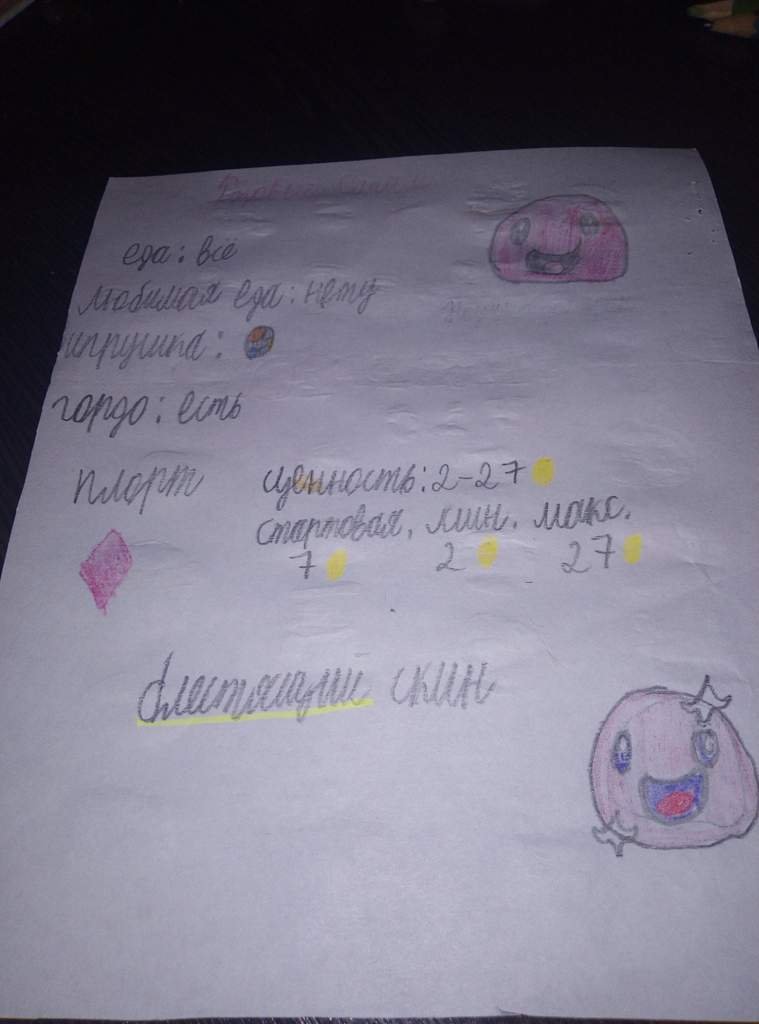 еда: всё
любимая еда: нету
игрушка:
гордо: есть
пларт ценность: 2-27
стартовая, мин. макс.
7 2 27
блестящий скин